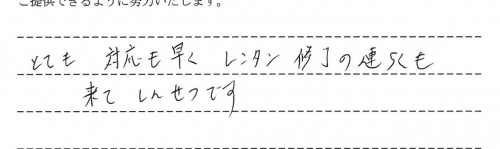 ご提供できるように努力いたします。
とても 対応も早く レンタン 修了の連らくも
来て しんせつです